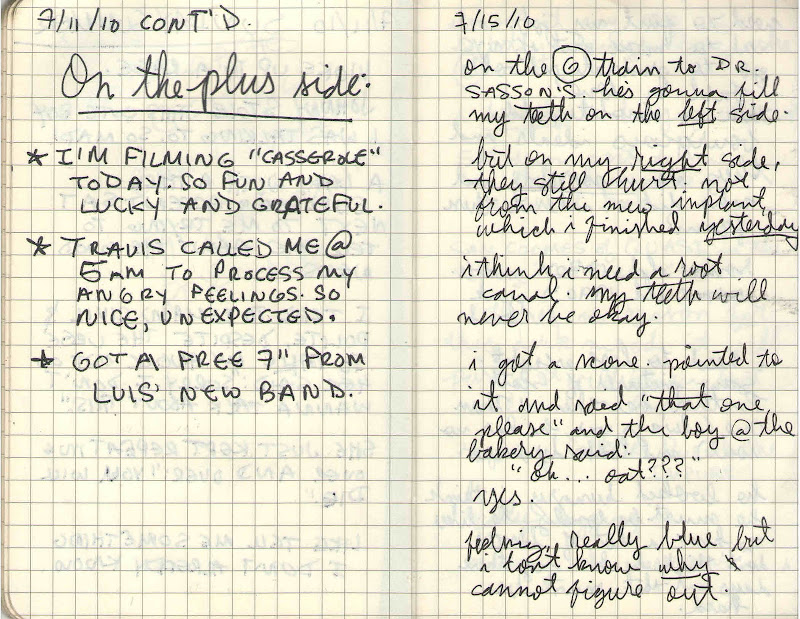 7/11/10 CONT'D.
On the plus side:
* I'M FILMING "CASSEROLE"
TODAY. SO FUN AND
LUCKY AND GRATEFUL.
* TRAVIS CALLED ME @
5AM TO PROCESS MY
ANGRY FEELINGS. SO
NICE, UNEXPECTED.
* GOT A FREE 7" FROM
LUIS' NEW BAND.
7/15/10
on the G train to DR.
SASSON'S. he's gonna fill
my teeth on the left side.
but on my right side,
they still hurt. not
from the new inplant,
which i finished yesterday
i think i need a root
canal. my teeth will
never be okay.
i got a scone. pointed to
it and said "that one
please" and the boy @ the
bakery said:
"oh... oat???"
yes.
feeling really blue but
i don't know why &
cannot figure out.